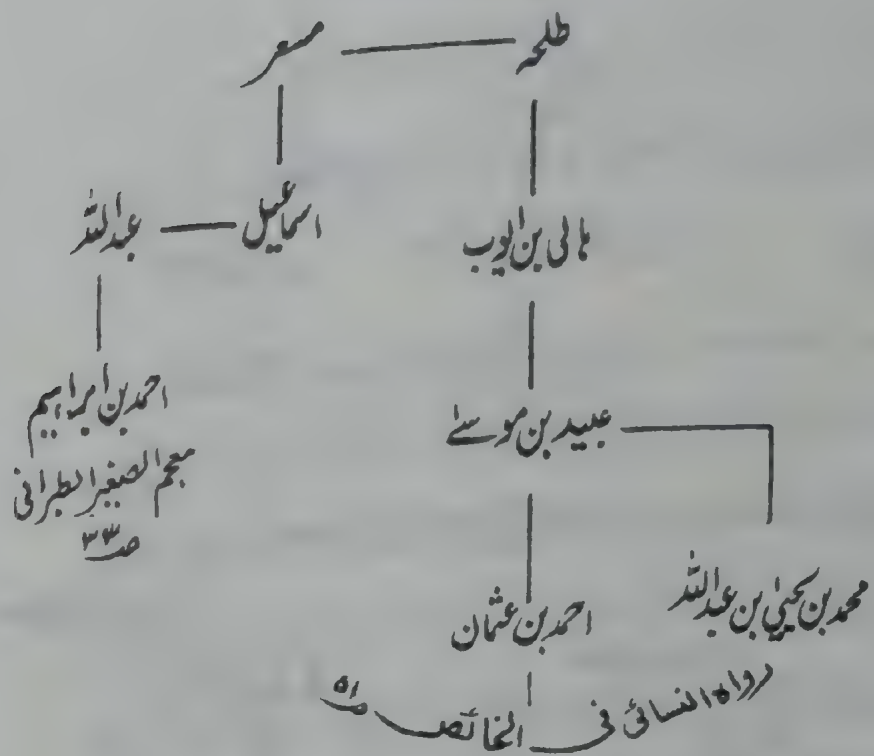 طلحہ
مسعر
ہانی بن ایوب
اسماعیل
عبداللہ
عبید بن موسےٰ
احمد بن ابراہیم
معجم الصغیر الطبرانی
ص۳۳
محمد بن یحییٰ بن عبداللہ
احمد بن عثمان
رواہ النسائی فی الخصائص ص۵۱